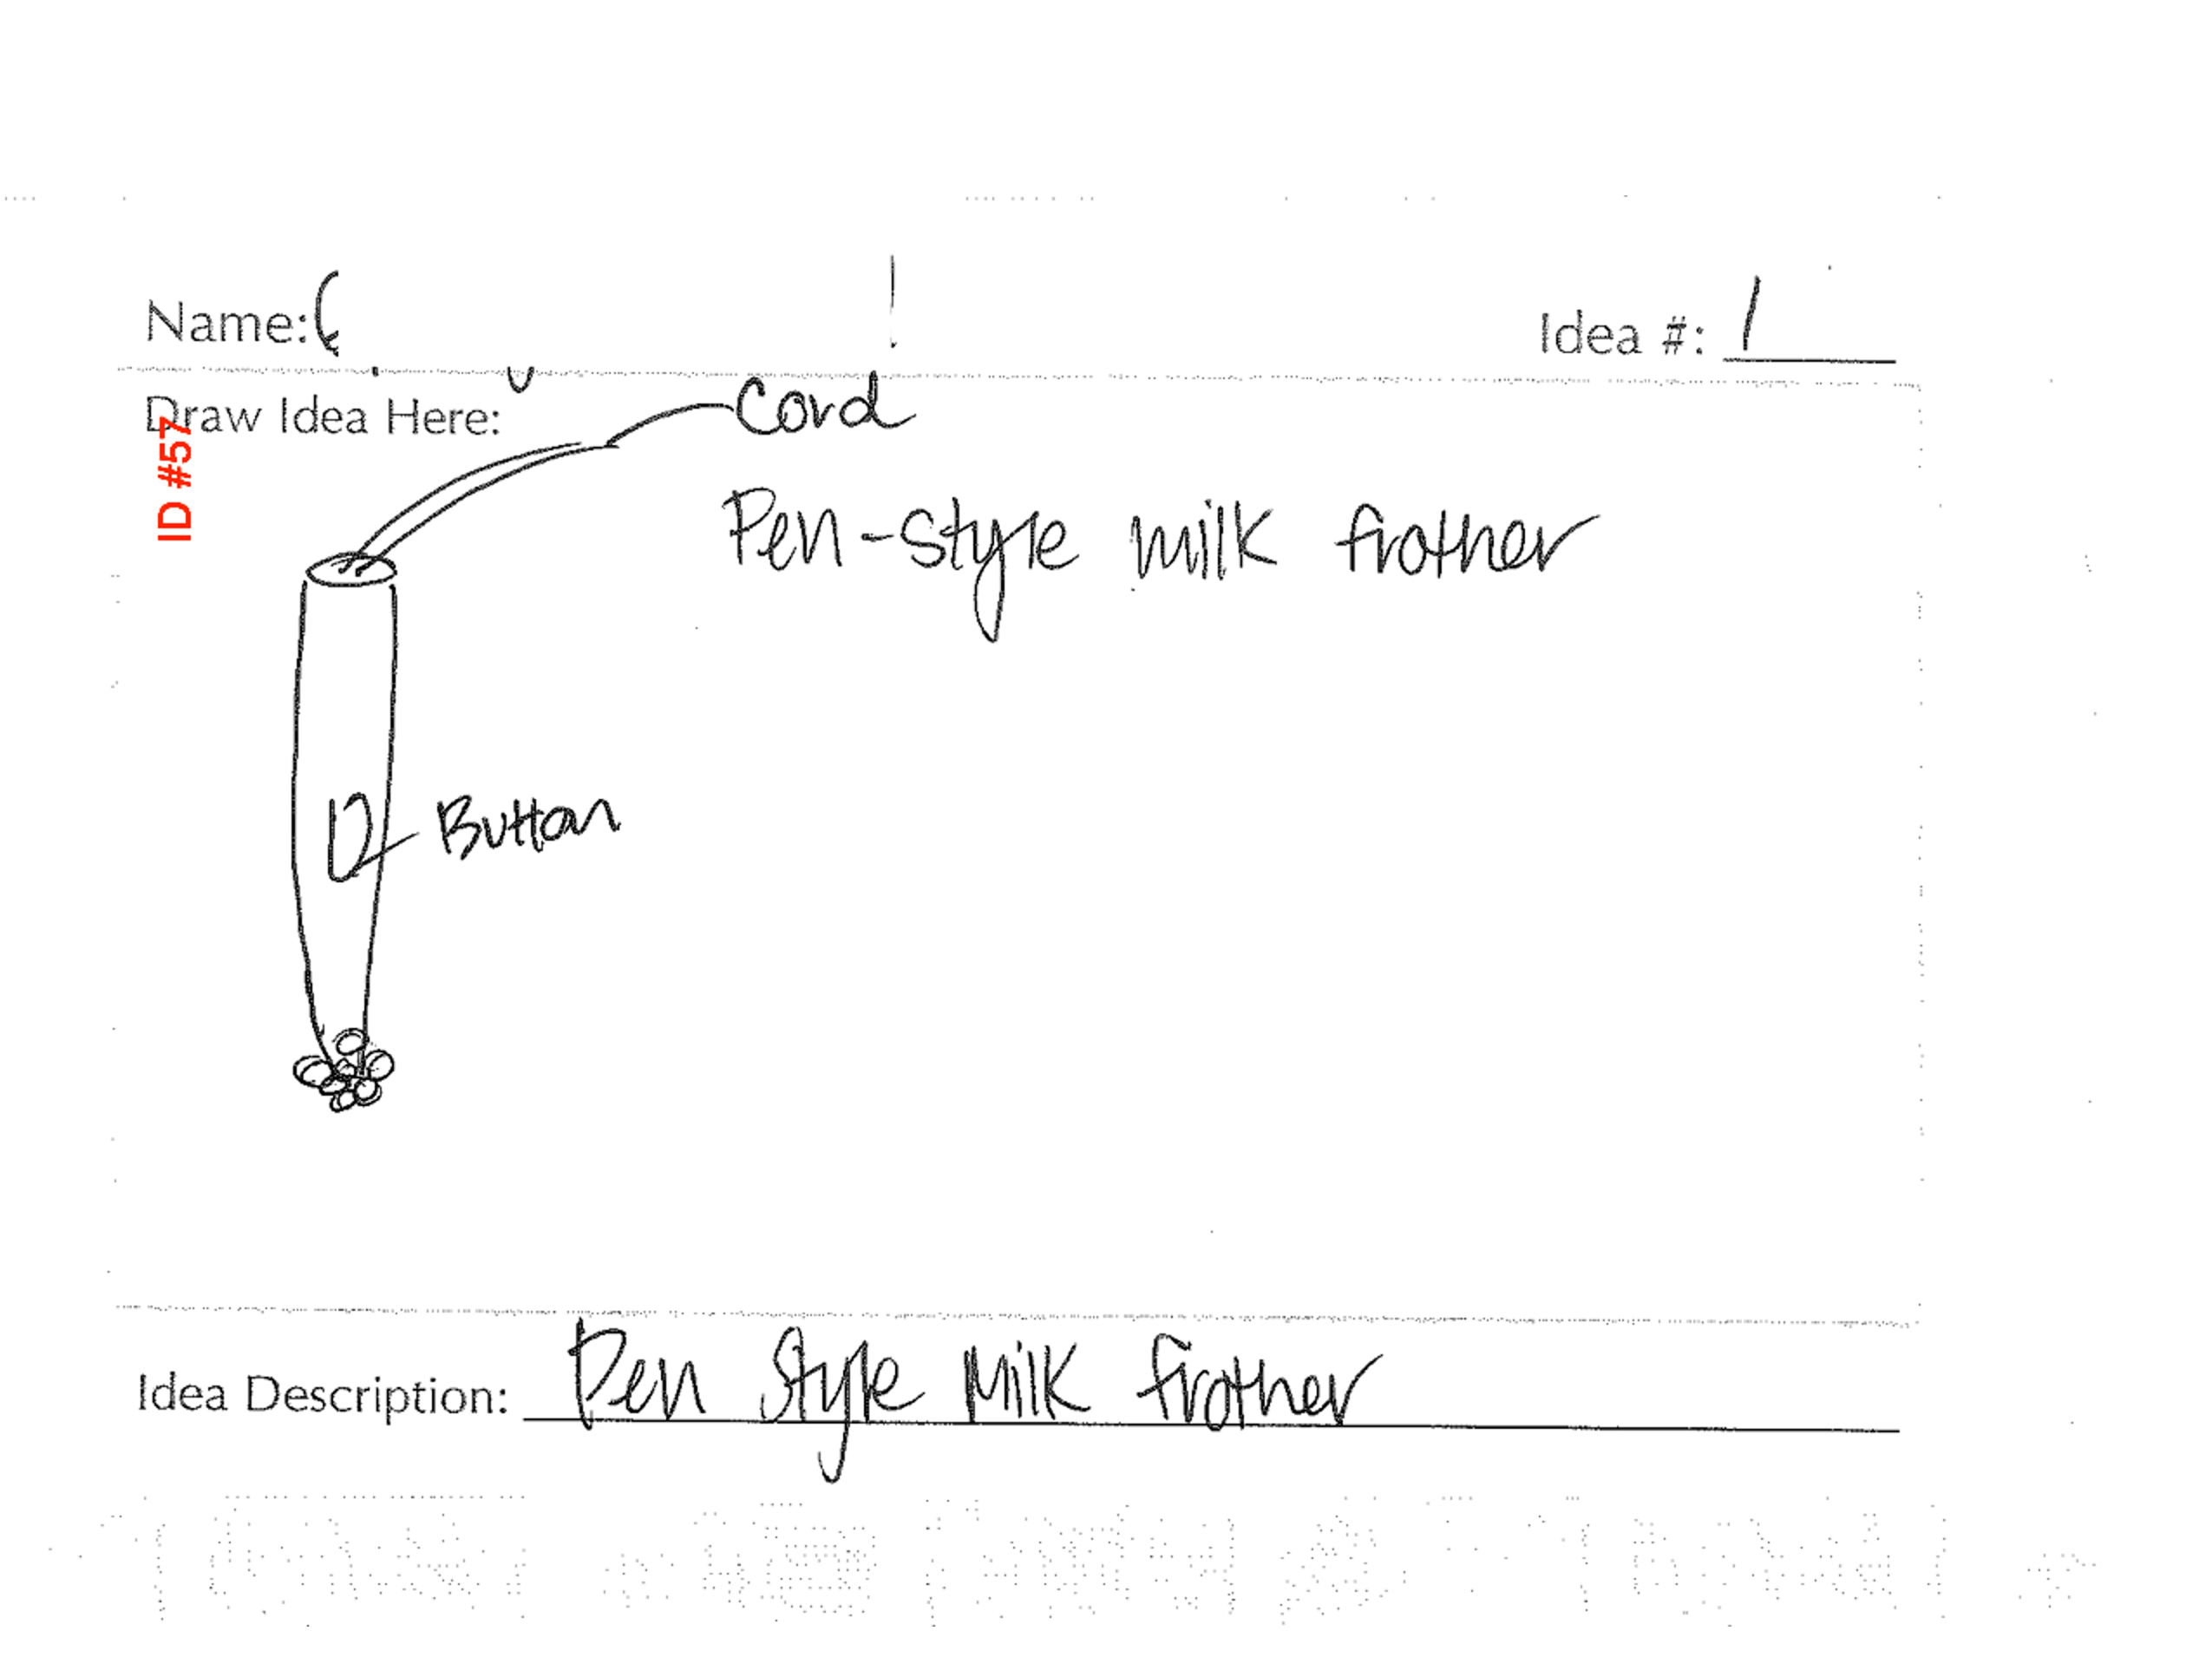 Name:
Idea #: 1
Draw Idea Here:
Cord
ID #57
Pen-style milk frother
Button
Idea Description: Pen Style Milk frother